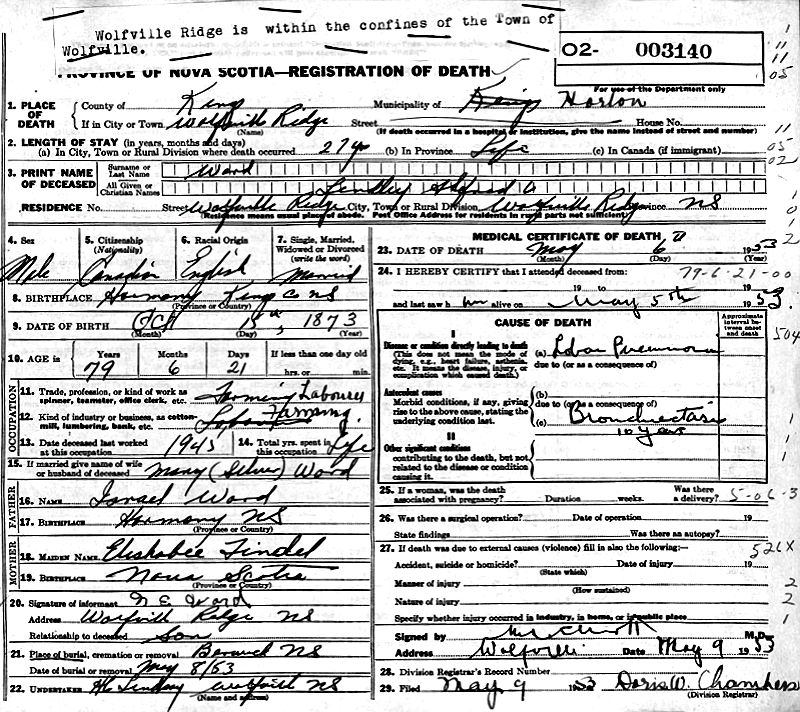 Wolfville Ridge is within the confines of the Town of
Wolfville.
02- 003140
PROVINCE OF NOVA SCOTIA—REGISTRATION OF DEATH
For use of the Department only
1. PLACE OF DEATH
County of Kings Municipality of Kings Horton
If in City or Town Wolfville Ridge Street House No.
(Name) (If death occurred in a hospital or institution, give the name instead of street and number)
2. LENGTH OF STAY (in years, months and days)
(a) In City, Town or Rural Division where death occurred 27 yr (b) In Province Life (c) In Canada (if immigrant)
3. PRINT NAME OF DECEASED
Surname or Last Name Ward
All Given or Christian Names Lindley
RESIDENCE No. Street Wolfville Ridge City, Town or Rural Division Wolfville Ridge Province NS
(Residence means usual place of abode. Post Office Address for residents in rural parts not sufficient)
4. Sex 5. Citizenship (Nationality) 6. Racial Origin 7. Single, Married, Widowed or Divorced (write the word)
Male Canadian English Married
8. BIRTHPLACE Harmony Kings Co NS
(Province or Country)
9. DATE OF BIRTH Oct 15th, 1873
(Month) (Day) (Year)
10. AGE is Years Months Days If less than one day old
79 6 21 hrs. or min.
OCCUPATION
11. Trade, profession, or kind of work as spinner, teamster, office clerk, etc. Farming Labourer
12. Kind of industry or business, as cotton-mill, lumbering, bank, etc. Farming
13. Date deceased last worked at this occupation 1945 14. Total yrs. spent in this occupation Life
15. If married give name of wife or husband of deceased Mary (Silver) Ward
FATHER
16. NAME Israel Ward
17. BIRTHPLACE Harmony NS
(Province or Country)
MOTHER
18. MAIDEN NAME
19. BIRTHPLACE Nova Scotia
(Province or Country)
20. Signature of informant N E Ward
Address Wolfvill Ridge NS
Relationship to deceased Son
21. Place of burial, cremation or removal Berwick NS
Date of burial or removal May 8/53
22. UNDERTAKER Lindsay NS
(Name and address)
MEDICAL CERTIFICATE OF DEATH
23. DATE OF DEATH May 6 1953
(Month) (Day) (Year)
24. I HEREBY CERTIFY that I attended deceased from: 79-6-21-00
19 to 19
and last saw him alive on May 5th 1953
CAUSE OF DEATH
Approximate interval between onset and death
504
I
Disease or condition directly leading to death
(This does not mean the mode of dying, e.g., heart failure, asthenia, etc. It means the disease, injury, or complication which caused death.)
(a) Lobar Pneumonia
due to (or as a consequence of)
Antecedent causes
Morbid conditions, if any, giving rise to the above cause, stating the underlying condition last.
(b)
due to (or as a consequence of)
(c) Bronchiectasis
10 years
II
Other significant conditions
contributing to the death, but not related to the disease or condition causing it.
25. If a woman, was the death associated with pregnancy? Duration weeks. Was there a delivery? 5-06-3
26. Was there a surgical operation? Date of operation 19
State findings Was there an autopsy?
27. If death was due to external causes (violence) fill in also the following:— 526X
Accident, suicide or homicide? Date of injury 19
(State which)
Manner of injury
(How sustained)
Nature of injury
Specify whether injury occurred in industry, in home, or in public place
Signed by M.D.
Address Wolfville Date May 9 1953
28. Division Registrar's Record Number
29. Filed May 9 1953 Doris W. Chambers
(Division Registrar)